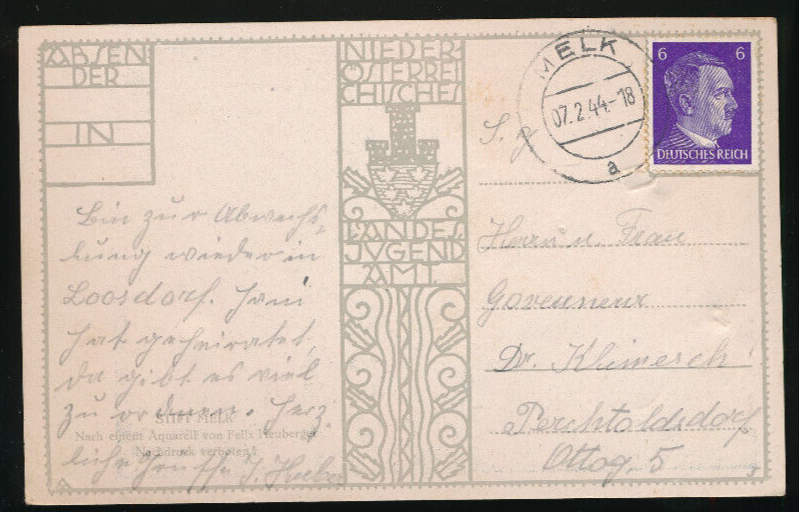 ABSEN
DER
IN
NIEDER-
ÖSTERREI
CHISCHES
LANDES
JUGEND
AMT
MELK
07.2.44.-18
a
6 6
DEUTSCHES REICH
Bin zur Abwechs-
lung wieder in
Loosdorf. Hani
hat geheiratet,
da gibt es viel
zu ordnen. Herz-
liche Grüße J. Huber
STIFT MELK
Nach einem Aquarell von Felix Heuberger
Nachdruck verboten!
S. g.
Herrn u. Frau
Gouverneur
Dr. Klimesch
Perchtoldsdorf
Ottog. 5